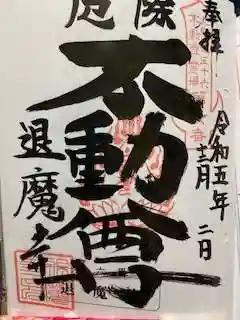 奉拝
令和五年
十二月二日
厄除
不動尊
退魔寺